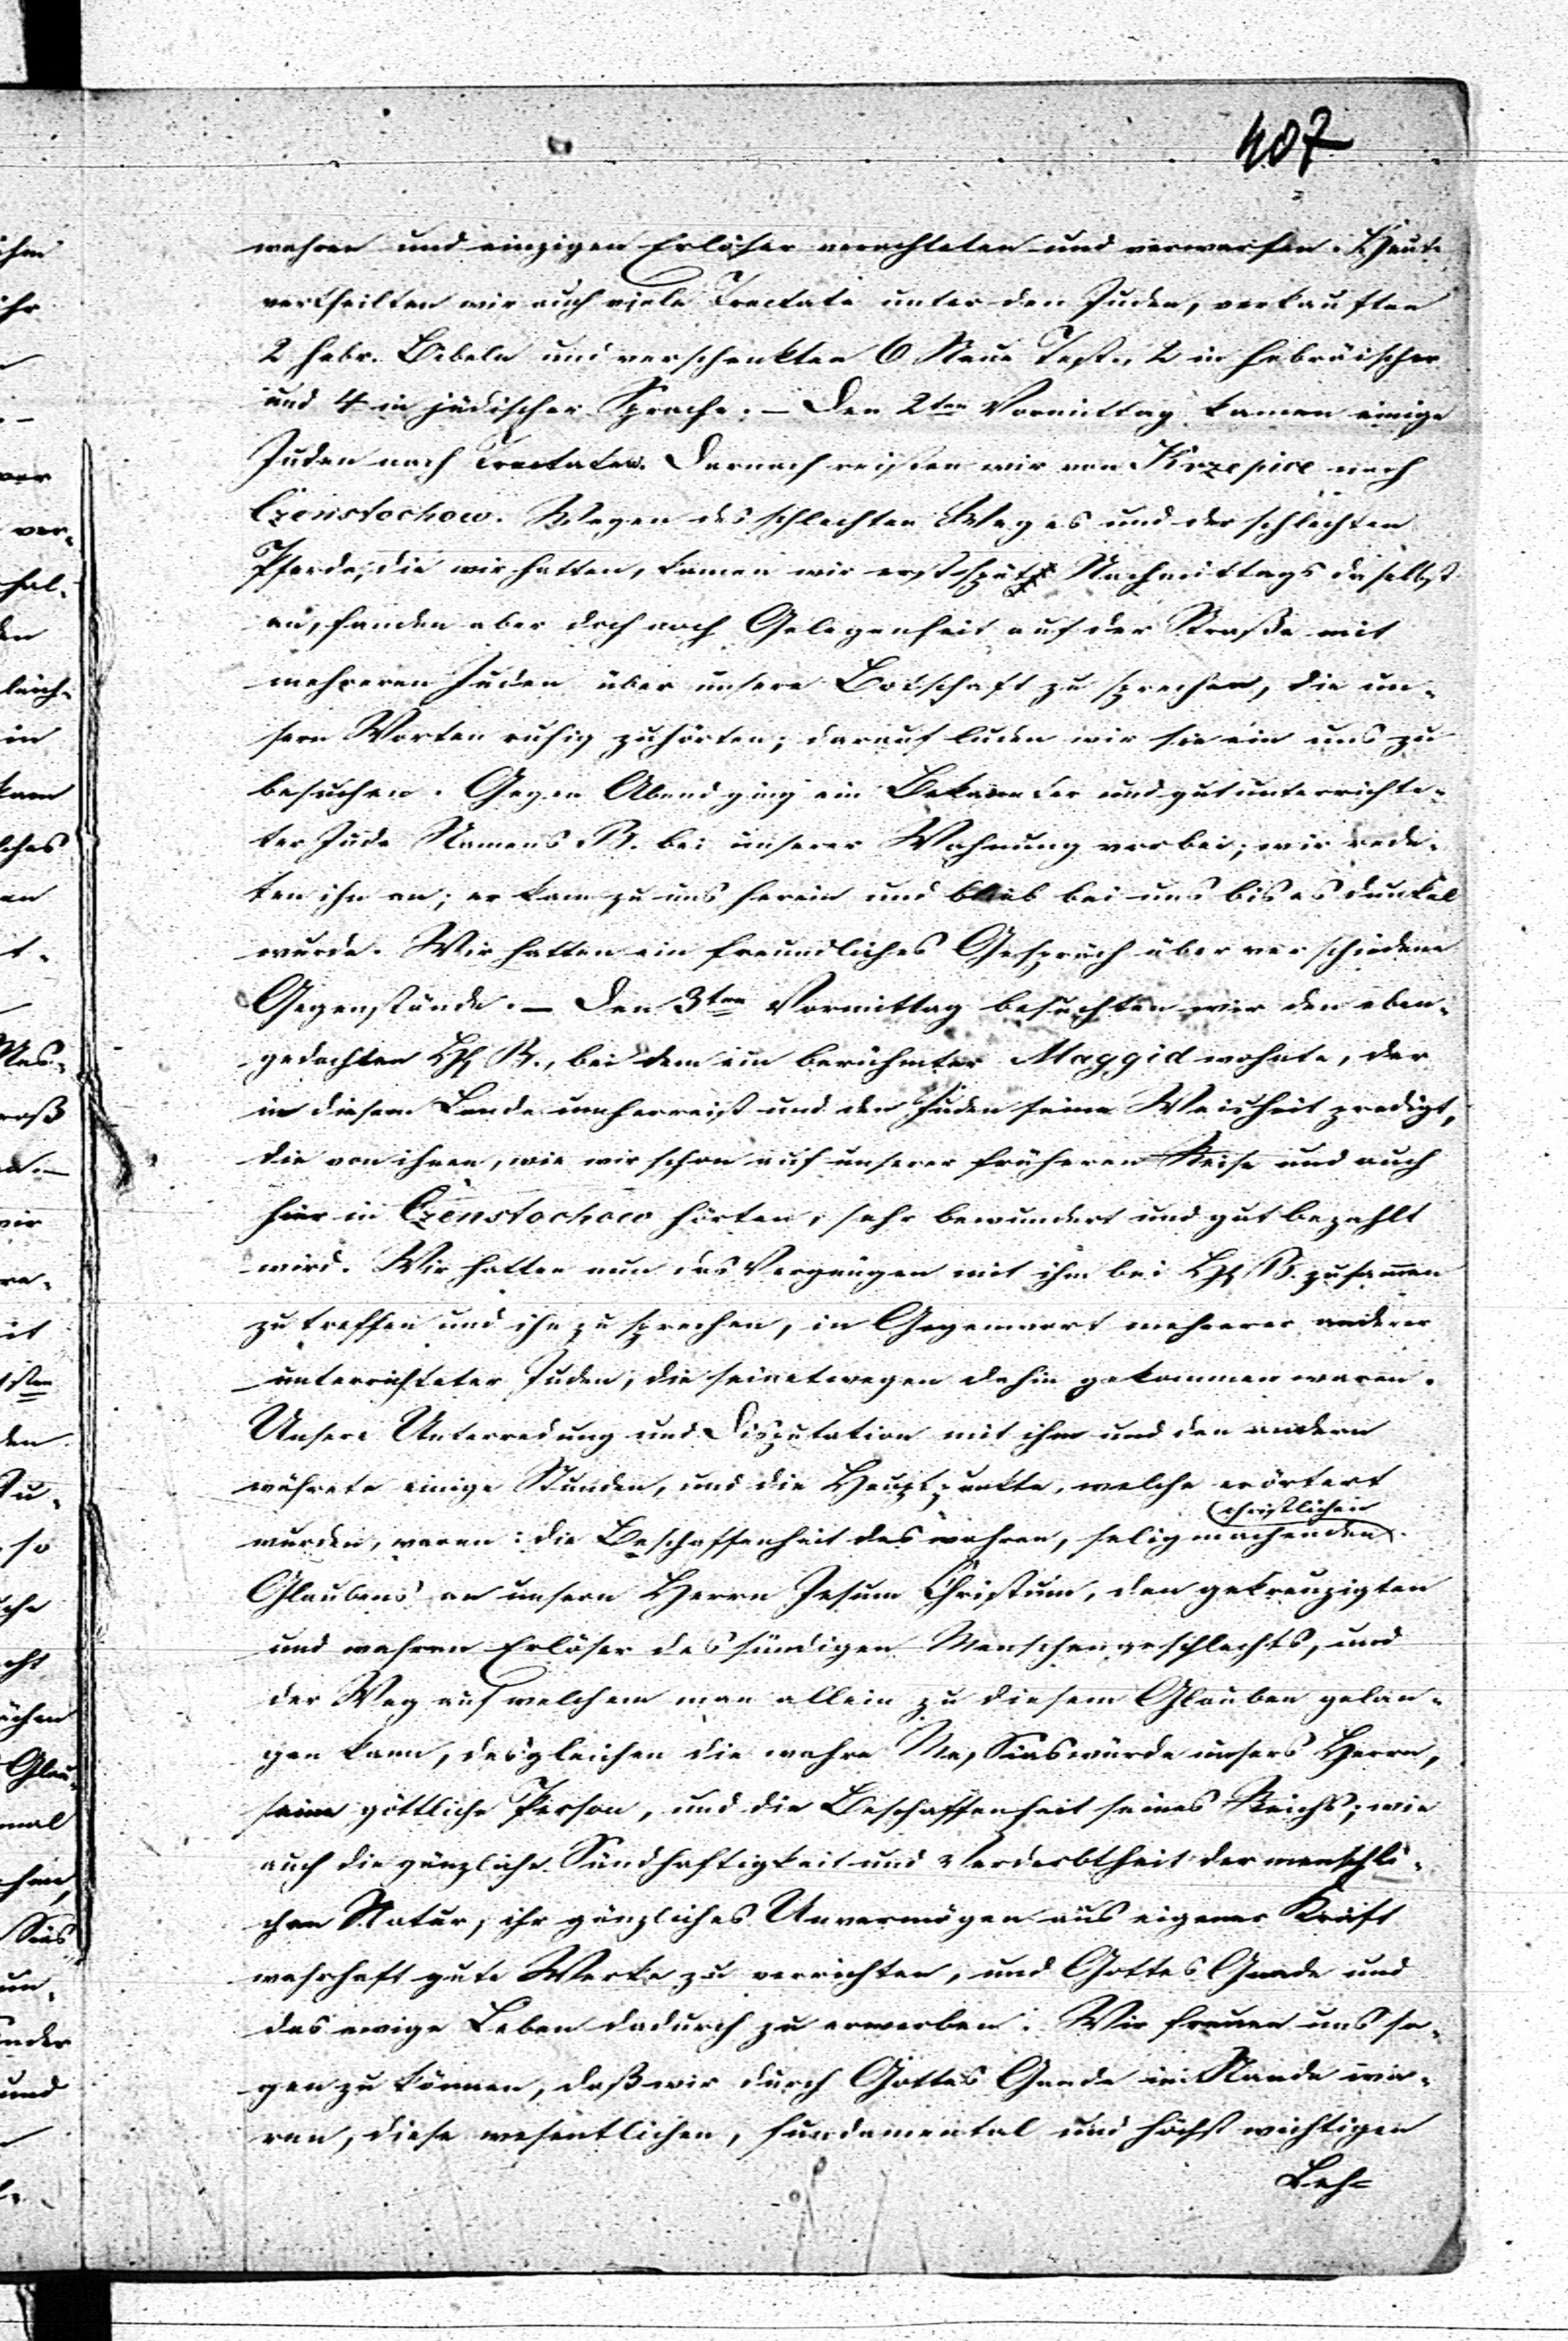 407
wahren und einzigen Erlöser verachteten und verwarfen. Heute
vertheilten wir auch viele Tractate unter den Juden, verkauften
2 hebr. Bibeln und verschenkten 6 Neue Test., 2 in hebräischer
und 4 in jüdischer Sprache. – Den 2ten Vormittag kamen einige
Juden nach Tractaten. Darnach reisten wir von Krzepice nach
Czenstochow. Wegen des schlechten Weges und der schlechten
Pferde, die wir hatten, kamen wir erst spät Nachmittags daselbst
an, fanden aber doch noch Gelegenheit auf der Straße mit
mehreren Juden über unsere Botschaft zu sprechen, die un-
sern Worten ruhig zuhörten; darauf luden wir sie ein uns zu
besuchen. Gegen Abend ging ein Bekannter und gut unterrichte-
ter Jude Namens B. bei unserer Wohnung vorbei; wir rede-
ten ihn an; er kam zu uns herein und blieb bei uns bis es dunkel
wurde. Wir hatten ein freundliches Gespräch über verschiedene
Gegenstände. – Den 3ten Vormittag besuchten wir den eben-
gedachten B., bei dem ein berühmter Maggid wohnte, der
in diesem Lande umherreist und den Juden seine Weisheit predigt,
die von ihnen, wie wir schon auf unserer früheren Reise und auch
hier in Czenstochow hörten, sehr bewundert und gut bezahlt
wird. Wir hatten nun das Vergnügen mit ihm bei B. zusammen
zu treffen und ihn zu sprechen, in Gegenwart mehrerer anderer
unterrichteter Juden, die seinetwegen dahin gekommen waren.
Unsere Unterredung und Disputation mit ihm und den andern
währete einige Stunden, und die Hauptpunkte, welche erörtert
christlichen
wurden, waren: die Beschaffenheit des wahren, seligmachenden
Glaubens an unsern Herrn Jesum Christum, den gekreuzigten
und wahren Erlöser des sündigen Menschengeschlechts, und
der Weg auf welchem man allein zu diesem Glauben gelan-
gen kann, desgleichen die wahre Messiaswürde unsers Herrn,
seine göttliche Person, und die Beschaffenheit seines Reichs; wie
auch die gänzliche Sündhaftigkeit und Verderbtheit der menschli-
chen Natur, ihr gänzliches Unvermögen aus eigener Kraft
wahrhaft gute Werke zu verrichten, und Gottes Gnade und
das ewige Leben dadurch zu erwerben. Wir freuen uns sa-
gen zu können, daß wir durch Gottes Gnade im Stande wa-
ren, diese wesentlichen, fundamental und höchst wichtigen
Leh-